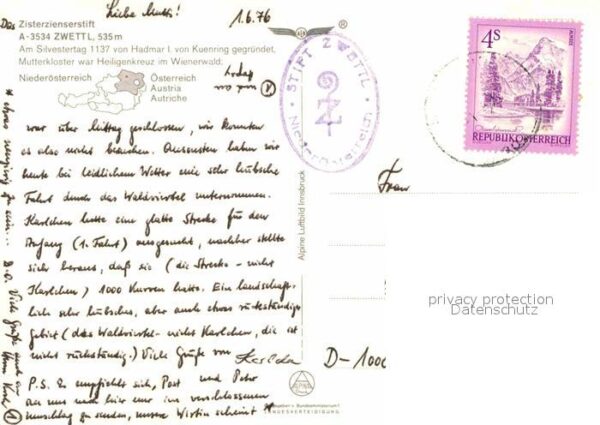 Liebe Mutti!
1.6.76
Das Zisterzienserstift
A-3534 ZWETTL, 535m
Am Silvestertag 1137 von Hadmar I. von Kuenring gegründet,
Mutterkloster war Heiligenkreuz im Wienerwald;
Niederösterreich
Österreich
Austria
Autriche
war über Mittag geschlossen, wir konnten
es also nicht besuchen. Ansonsten haben wir
heute bei leidlichem Wetter eine sehr hübsche
Fahrt durch das Waldviertel unternommen.
Karlchen hatte eine glatte Strecke für den
Anfang (1. Fahrt) ausgesucht, nachher stellte
sich heraus, daß sie (die Strecke - nicht
Karlchen) 1000 Kurven hatte. Ein landschaft-
lich sehr hübsches, aber auch etwas rückständiges
Gebiet (das Waldviertel - nicht Karlchen, die ist
nicht rückständig.) Viele Grüße von
P.S. Es empfiehlt sich, Post und
an uns nach hier nur im verschlossenen
Umschlag zu senden, unsere Wirtin scheint *
* etwas neugierig zu sein...
D.O. Viele Grüße auch
STIFT ZWETTL
Niederösterreich
4S
REPUBLIK ÖSTERREICH
Frau
D-1000
Alpine Luftbild Innsbruck
privacy protection
Datenschutz
LANDESVERTEIDIGUNG